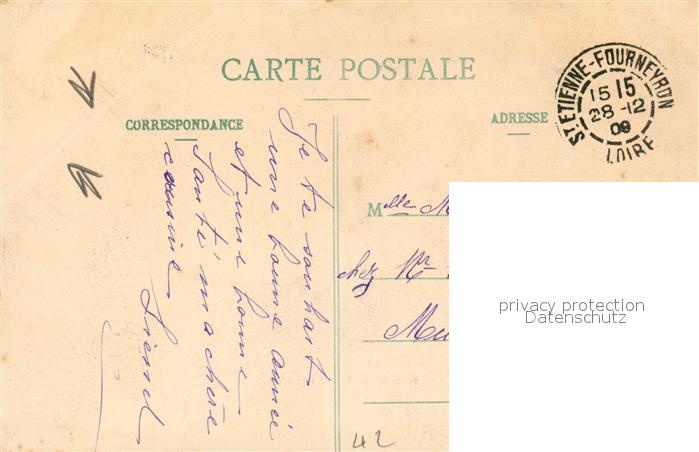 CARTE POSTALE
CORRESPONDANCE
ADRESSE
ST ETIENNE-FOURNEYRON
15 15
28-12
09
LOIRE
Je te souhait
une bonne année
et une bonne
Santé ma chère
cousine
Mlle M
chez Mr
Mu
42
privacy protection
Datenschutz